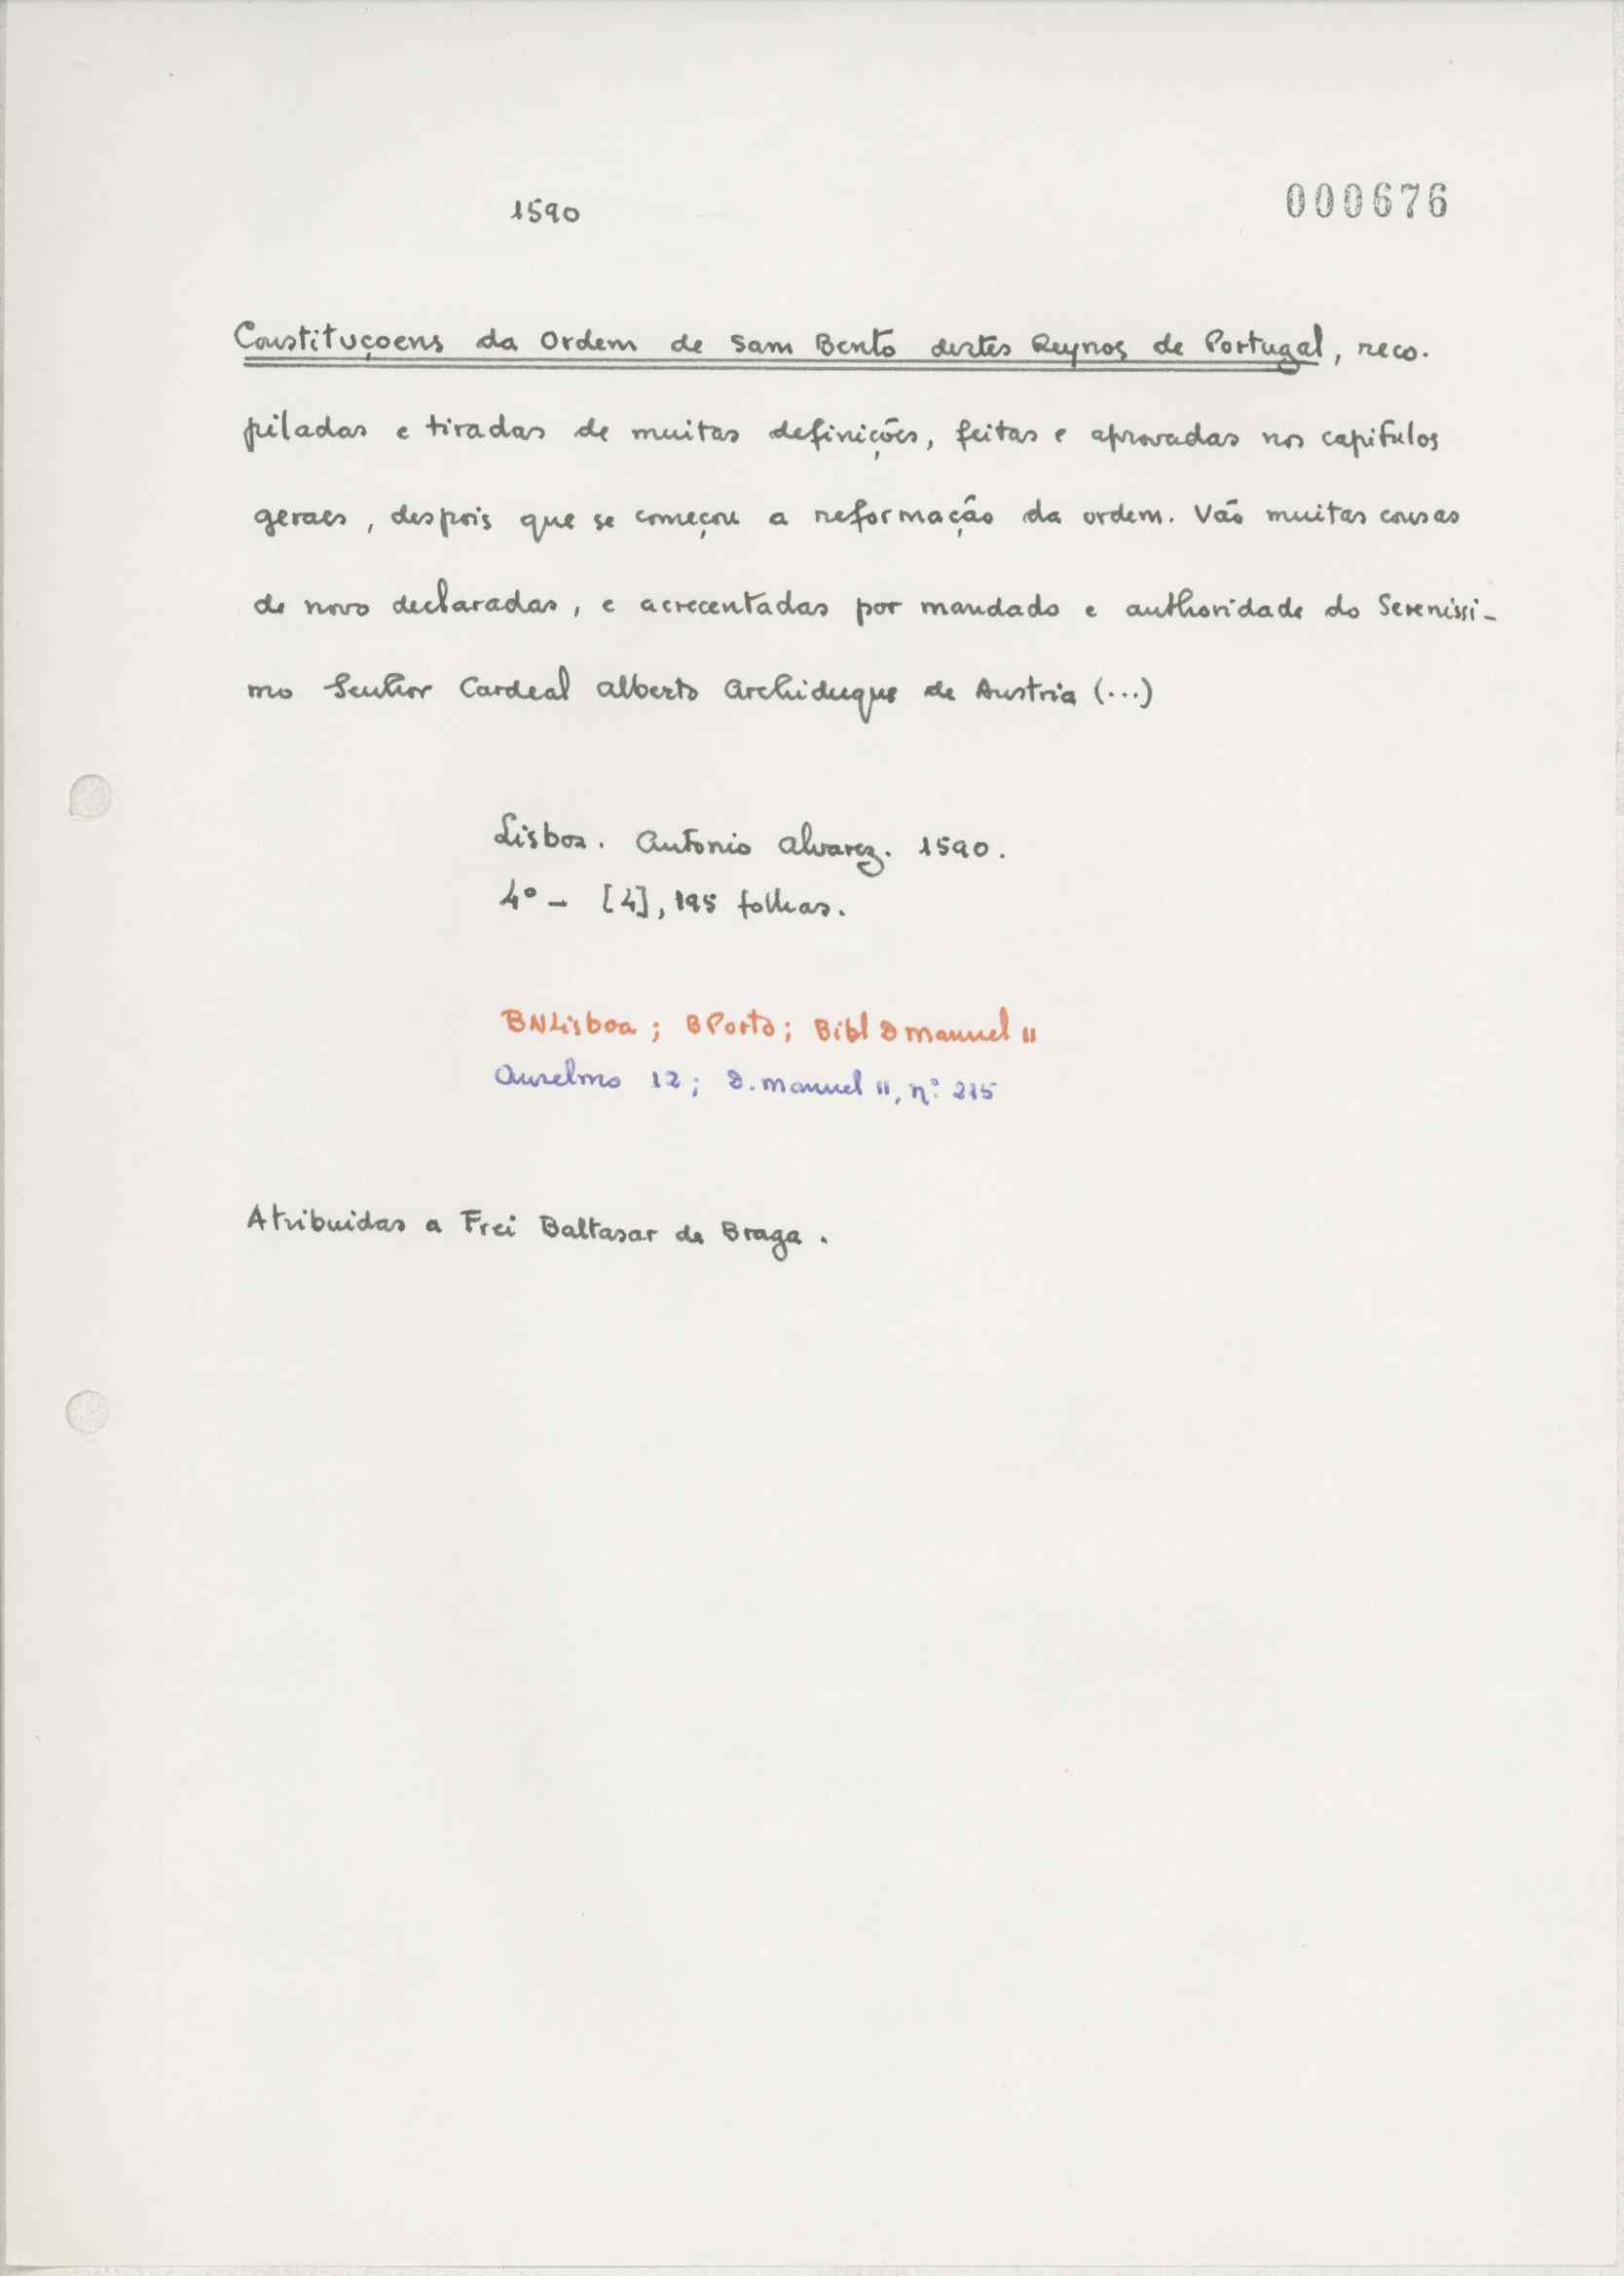 1590
000676
Constituçoens da Ordem de Sam Bento destes Reynos de Portugal, reco-
piladas e tiradas de muitas definições, feitas e aprovadas nos capitulos
geraes, despois que se começou a reformação da ordem. Vão muitas cousas
de novo declaradas, e acrecentadas por mandado e authoridade do Serenissi-
mo Senhor Cardeal Alberto Archiduque de Austria (...)
Lisboa. Antonio Alvarez. 1590.
4º - [4], 195 folhas.
BNLisboa; BPorto; Bibl D Manuel II
Anselmo 12; D. Manuel II, nº 215
Atribuidas a Frei Baltasar de Braga.